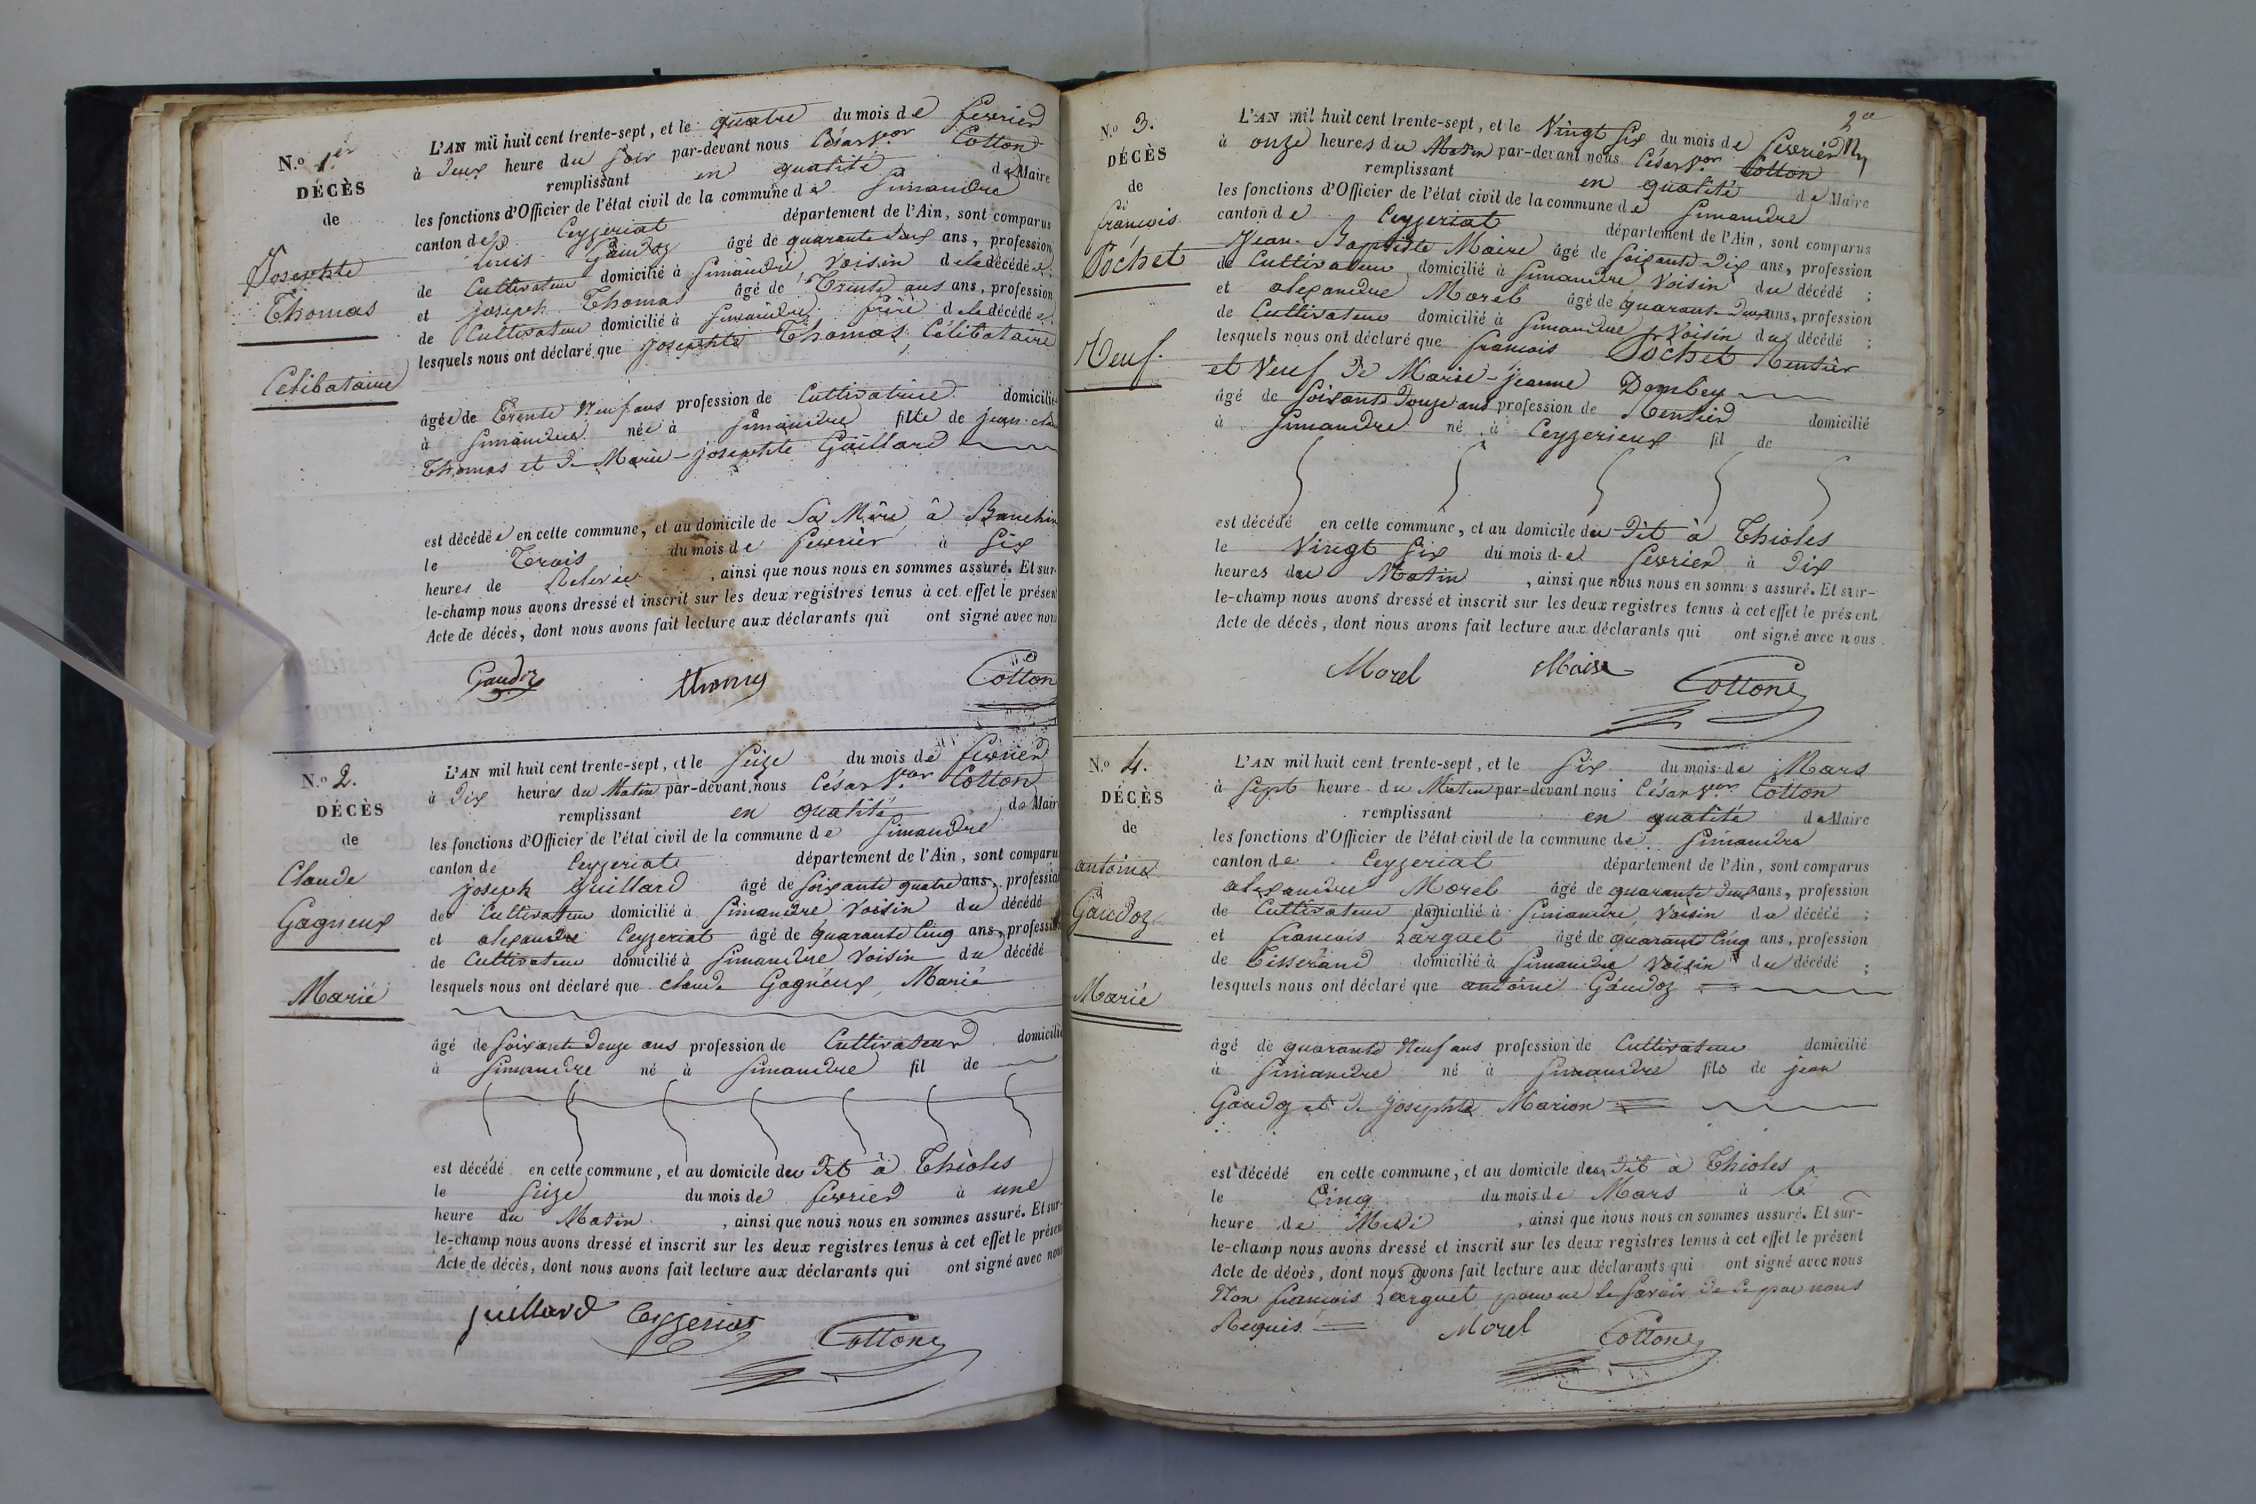 N.º 1.er
DÉCÈS
de
Josephte
Thomas
Célibataire
L'AN mil huit cent trente-sept, et le quatre du mois de fevrier
à deux heure du soir par-devant nous César V.or Cotton
remplissant en qualité de Maire
les fonctions d'Officier de l'état civil de la commune de Simandre
canton de Ceyzeriat département de l'Ain, sont comparus
Louis Gaudoz âgé de quarante deux ans, profession
de Cultivateur domicilié à Simandre Voisin de la décédée
et joseph Thomas âgé de Trente ans ans, profession
de Cultivateur domicilié à Simandre frère de la décédée
lesquels nous ont déclaré que josephte Thomas, Célibataire
âgée de Trente Neuf ans profession de Cultivatrice domicilié
à Simandre née à Simandre fille de jean
Thomas et de Marie-josephte Gaillard
est décédée en cette commune, et au domicile de Sa Mère à Banchin
le Trois du mois de fevrier à Six
heures de Relevée, ainsi que nous nous en sommes assuré. Et sur-
le-champ nous avons dressé et inscrit sur les deux registres tenus à cet effet le présent
Acte de décès, dont nous avons fait lecture aux déclarants qui ont signé avec nous
Gaudoz Thomas Cotton
N.º 2.
DÉCÈS
de
Claude
Gagneux
Marié
L'AN mil huit cent trente-sept, et le Seize du mois de fevrier
à Dix heures du Matin par-devant nous César V.or Cotton
remplissant en qualité de Maire
les fonctions d'Officier de l'état civil de la commune de Simandre
canton de Ceyzeriat département de l'Ain, sont comparus
joseph juillard âgé de Soixante quatre ans, profession
de Cultivateur domicilié à Simandre Voisin du décédé
et alexandre Ceyzeriat âgé de quarante Cinq ans, profession
de Cultivateur domicilié à Simandre Voisin du décédé
lesquels nous ont déclaré que claude Gagneux, Marié
âgé de Soixante Douze ans profession de Cultivateur domicilié
à Simandre né à Simandre fil de
est décédé en cette commune, et au domicile du Dit à Thioles
le Seize du mois de fevrier à une
heure du Matin, ainsi que nous nous en sommes assuré. Et sur-
le-champ nous avons dressé et inscrit sur les deux registres tenus à cet effet le présent
Acte de décès, dont nous avons fait lecture aux déclarants qui ont signé avec nous
juillard Ceyzeriat Cotton
2e
N.º 3.
DÉCÈS
de
françois
Pochet
Veuf.
L'AN mil huit cent trente-sept, et le Vingt Six du mois de fevrier
à onze heures du Matin par-devant nous César V.or Cotton
remplissant en qualité de Maire
les fonctions d'Officier de l'état civil de la commune de Simandre
canton de Ceyzeriat département de l'Ain, sont comparus
Jean-Baptiste Maire âgé de Soixante Dix ans, profession
de Cultivateur domicilié à Simandre Voisin du décédé ;
et alexandre Morel âgé de quarante Deux ans, profession
de Cultivateur domicilié à Simandre Voisin du décédé ;
lesquels nous ont déclaré que françois Pochet Rentier
et Veuf de Marie-jeanne Dombey
âgé de Soixante Douze ans profession de Rentier domicilié
à Simandre né à Ceyzerieux fil de
est décédé en cette commune, et au domicile du Dit à Thioles
le Vingt Six du mois de fevrier à Dix
heures du Matin, ainsi que nous nous en sommes assuré. Et sur-
le-champ nous avons dressé et inscrit sur les deux registres tenus à cet effet le présent
Acte de décès, dont nous avons fait lecture aux déclarants qui ont signé avec nous.
Morel Maire Cotton
N.º 4.
DÉCÈS
de
antoine
Gaudoz
Marié
L'AN mil huit cent trente-sept, et le Six du mois de Mars
à Sept heure du Matin par-devant nous César V.or Cotton
remplissant en qualité de Maire
les fonctions d'Officier de l'état civil de la commune de Simandre
canton de Ceyzeriat département de l'Ain, sont comparus
alexandre Morel âgé de quarante Deux ans, profession
de Cultivateur domicilié à Simandre Voisin du décédé ;
et françois Larguet âgé de quarante Cinq ans, profession
de Tisserand domicilié à Simandre Voisin du décédé ;
lesquels nous ont déclaré que antoine Gaudoz
âgé de quarante Neuf ans profession de Cultivateur domicilié
à Simandre né à Simandre fils de jean
Gaudoz et de josephte Marion
est décédé en cette commune, et au domicile du Dit à Thioles
le Cinq du mois de Mars à
heure de Midi, ainsi que nous nous en sommes assuré. Et sur-
le-champ nous avons dressé et inscrit sur les deux registres tenus à cet effet le présent
Acte de décès, dont nous avons fait lecture aux déclarants qui ont signé avec nous
Non françois Larguet pour ne le Savoir de ce par nous
Requis. Morel Cotton